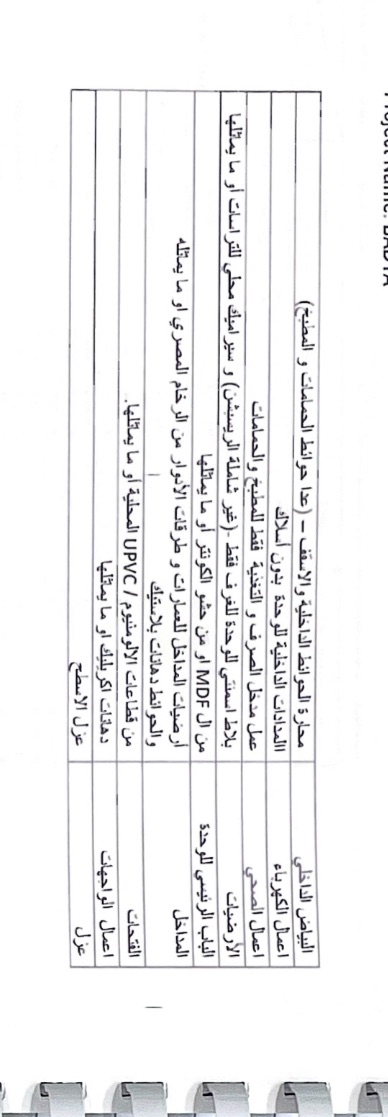 Project Name: BADYA
البياض الداخلي	محارة الحوائط الداخلية والاسقف – (عدا حوائط الحمامات و المطبخ)
اعمال الكهرباء	المدادات الداخلية للوحدة بدون أسلاك
اعمال الصحي	عمل مدخل الصرف و التغذية فقط للمطبخ والحمامات
الأرضيات	بلاط اسمنتي للوحدة للغرف فقط -(غير شاملة الريسبشن) و سيراميك محلي للتراسات أو ما يماثلها
الباب الرئيسي للوحدة	من ال MDF او من حشو الكونتر أو ما يماثلها
المداخل	أرضيات المداخل للعمارات و طرقات الأدوار من الرخام المصري او ما يماثله
والحوائط دهانات بلاستيك
الفتحات	من قطاعات الالومنيوم / UPVC المحلية أو ما يماثلها.
اعمال الواجهات	دهانات اكريليك او ما يماثلها
عزل	عزل الاسطح